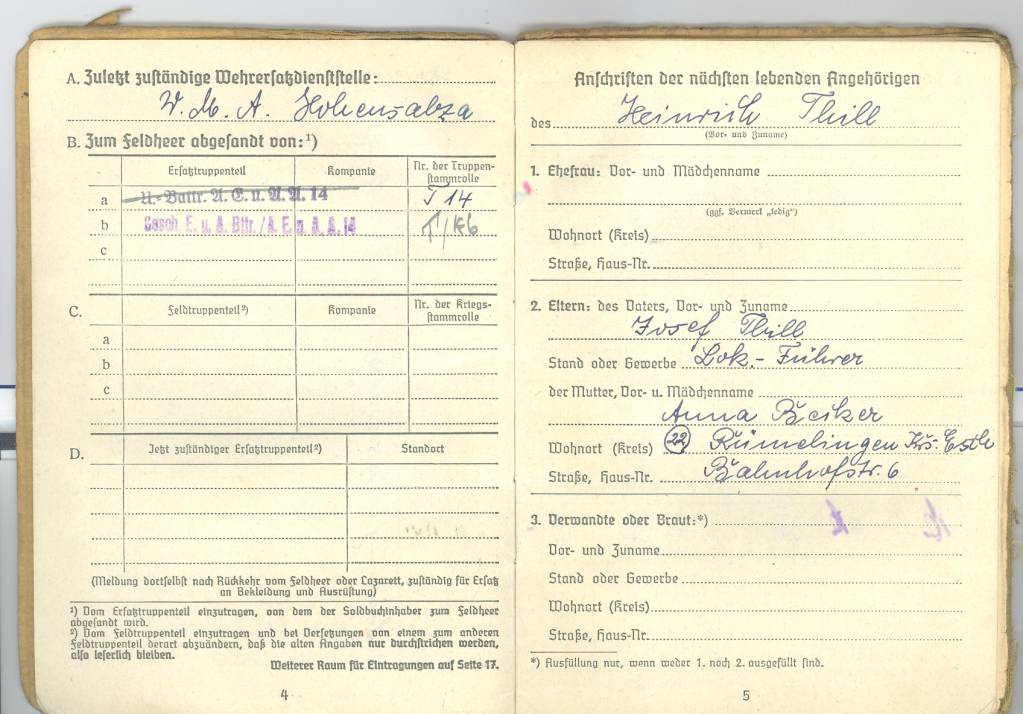 A. Zuletzt zuständige Wehrersatzdienststelle:
W. M. A. Hohensalza
B. Zum Feldheer abgesandt von:¹)
Ersatztruppenteil Kompanie Nr. der Truppen-
stammrolle
a U.-Battr. A. E. u. A. A. 14 T 14
b Gesch. E. u. A. Bttr./A. E. u. A. A. 14
c
C. Feldtruppenteil²) Kompanie Nr. der Kriegs-
stammrolle
a
b
c
D. Jetzt zuständiger Ersatztruppenteil²) Standort
(Meldung dortselbst nach Rückkehr vom Feldheer oder Lazarett, zuständig für Ersatz
an Bekleidung und Ausrüstung)
¹) Vom Ersatztruppenteil einzutragen, von dem der Soldbuchinhaber zum Feldheer
abgesandt wird.
²) Vom Feldtruppenteil einzutragen und bei Versetzungen von einem zum anderen
Feldtruppenteil derart abzuändern, daß die alten Angaben nur durchstrichen werden,
also leserlich bleiben.
Weiterer Raum für Eintragungen auf Seite 17.
4
Anschriften der nächsten lebenden Angehörigen
des Heinrich Thill
(Vor- und Zuname)
1. Ehefrau: Vor- und Mädchenname
(ggf. Vermerk „ledig")
Wohnort (Kreis)
Straße, Haus-Nr.
2. Eltern: des Vaters, Vor- und Zuname
Josef Thill
Stand oder Gewerbe Lok.-Führer
der Mutter, Vor- u. Mädchenname
Anna Becker
Wohnort (Kreis) (22) Rümelingen Krs. Esch
Straße, Haus-Nr. Bahnhofstr. 6
3. Verwandte oder Braut:*)
Vor- und Zuname
Stand oder Gewerbe
Wohnort (Kreis)
Straße, Haus-Nr.
*) Ausfüllung nur, wenn weder 1. noch 2. ausgefüllt sind.
5